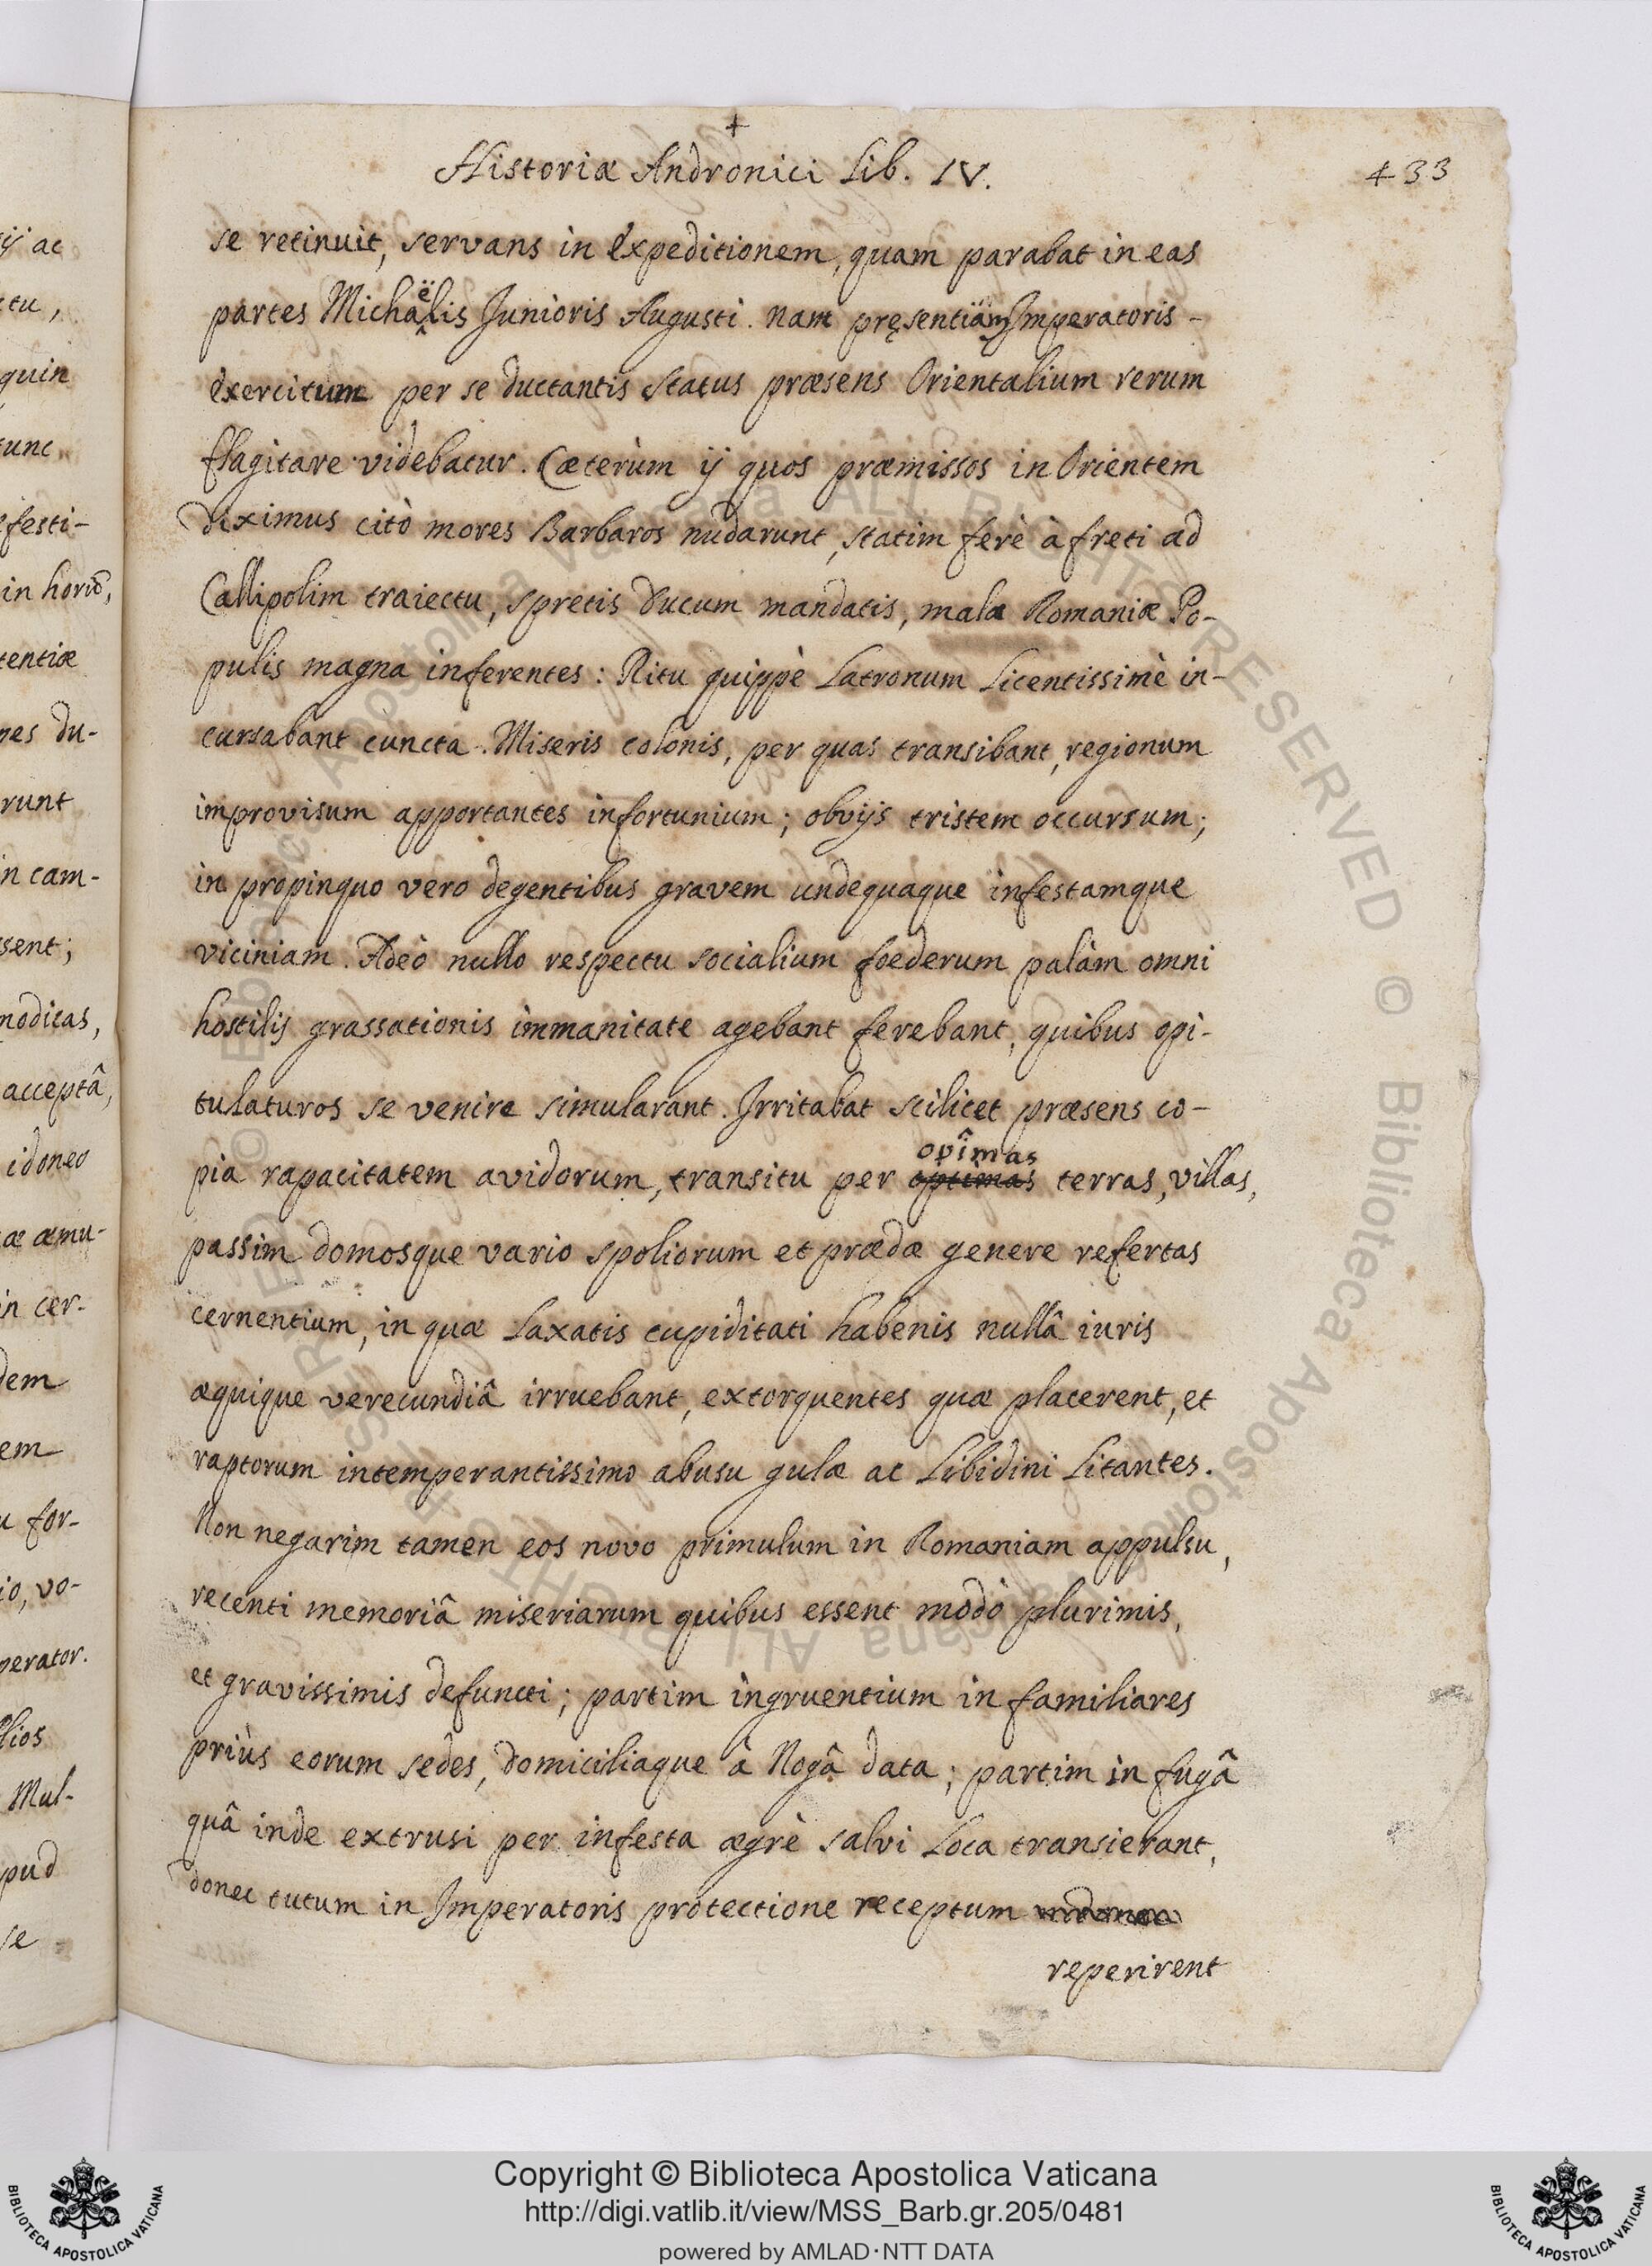 +
Historiæ Andronici Lib. IV.
433
se retinuit, servans in expeditionem, quam parabat in eas
partes Michaëlis Junioris Augusti. Nam pręsentiam Imperatoris
exercitum per se ductantis status præsens Orientalium rerum
flagitare videbatur. Cæterùm ij quos præmissos in Orientem
diximus citò mores Barbaros nudarunt, statim ferè à freti ad
Callipolim traiectu, spretis Ducum mandatis, mala Romaniæ Po-
pulis magna inferentes: Ritu quippè Latronum Licentissimè in-
cursabant cuncta. Miseris colonis, per quas transibant, regionum
improvisum apportantes infortunium; obvijs tristem occursum;
in propinquo vero degentibus gravem undequaque infestamque
viciniam. Adeò nullo respectu socialium foederum palàm omni
hostilis grassationis immanitate agebant ferebant, quibus opi-
tulaturos se venire simularant. Irritabat scilicet præsens co-
pia rapacitatem avidorum, transitu per optimas opîmas terras, villas,
passim domosque vario spoliorum et prædæ genere refertas
cernentium, in quæ Laxatis cupiditati habenis nullâ iuris
æquique verecundiâ irruebant, extorquentes quæ placerent, et
raptorum intemperantissimo abusu gulæ ac Libidini Litantes.
Non negarim tamen eos novo primulum in Romaniam appulsu,
recenti memoriâ miseriarum quibus essent modò plurimis,
et gravissimis defuncti; partim ingruentium in familiares
priùs eorum sedes, domiciliaque à Nogâ data; partim in fugâ
quâ inde extrusi per infesta ægrè salvi Loca transierant,
donec tutum in Imperatoris protectione receptum
reperirent
ij ac
tu,
quin
tunc
festi-
in horiō,
tentiæ
nes du-
runt
in cam-
ssent;
nodicas,
acceptâ,
idoneo
æ æmu-
in cer-
dem
em
u for-
io, vo-
perator.
lios
Mul-
pud
se
Copyright © Biblioteca Apostolica Vaticana
http://digi.vatlib.it/view/MSS_Barb.gr.205/0481
powered by AMLAD·NTT DATA
BIBLIOTECA APOSTOLICA VATICANA
BIBLIOTECA APOSTOLICA VATICANA